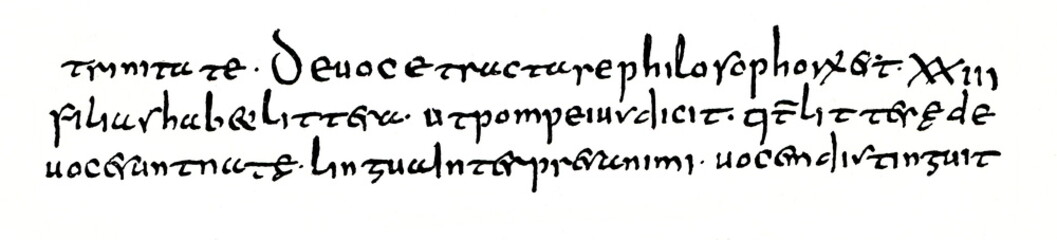 trinitate. De uoce tractare philosophoꝝ &t. XXIII
filias hab& littera. ut pompeius dicit. qt̄ litterę de
uocerant natę. lingua Interpres animi. uocem distinguit